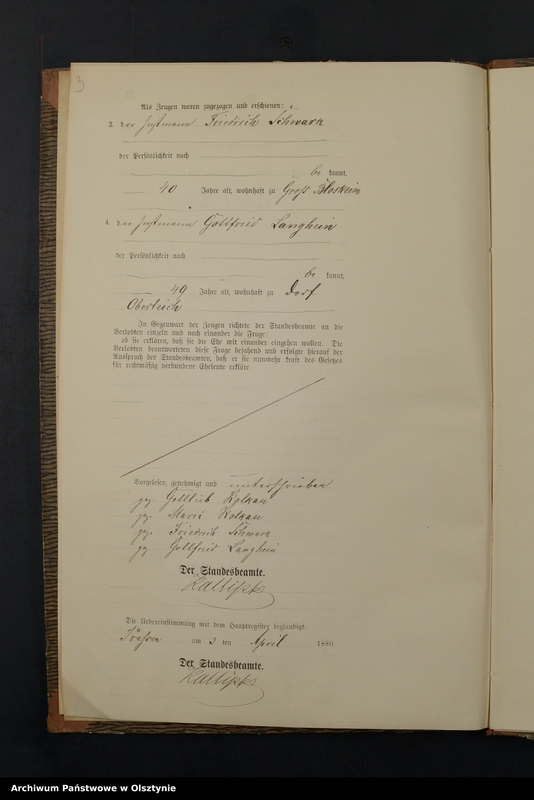 3
Als Zeugen waren zugezogen und erschienen:
3. der Instmann Friedrich Schwark
der Persönlichkeit nach
be kannt,
40 Jahre alt, wohnhaft zu Groß Blaskeim
4. der Instmann Gottfried Langhein
der Persönlichkeit nach
be kannt,
49 Jahre alt, wohnhaft zu Dorf
Oberteich
In Gegenwart der Zeugen richtete der Standesbeamte an die
Verlobten einzeln und nach einander die Frage:
ob sie erklären, daß sie die Ehe mit einander eingehen wollen. Die
Verlobten beantworteten diese Frage bejahend und erfolgte hierauf der
Ausspruch des Standesbeamten, daß er sie nunmehr kraft des Gesetzes
für rechtmäßig verbundene Eheleute erkläre.
Vorgelesen, genehmigt und unterschrieben
gez. Gottlieb Kolkau
gez. Maria Kolkau
gez. Friedrich Schwark
gez. Gottfried Langhein
Der Standesbeamte.
Die Uebereinstimmung mit dem Hauptregister beglaubigt.
am 3 ten April 1880
Der Standesbeamte.
Archiwum Państwowe w Olsztynie